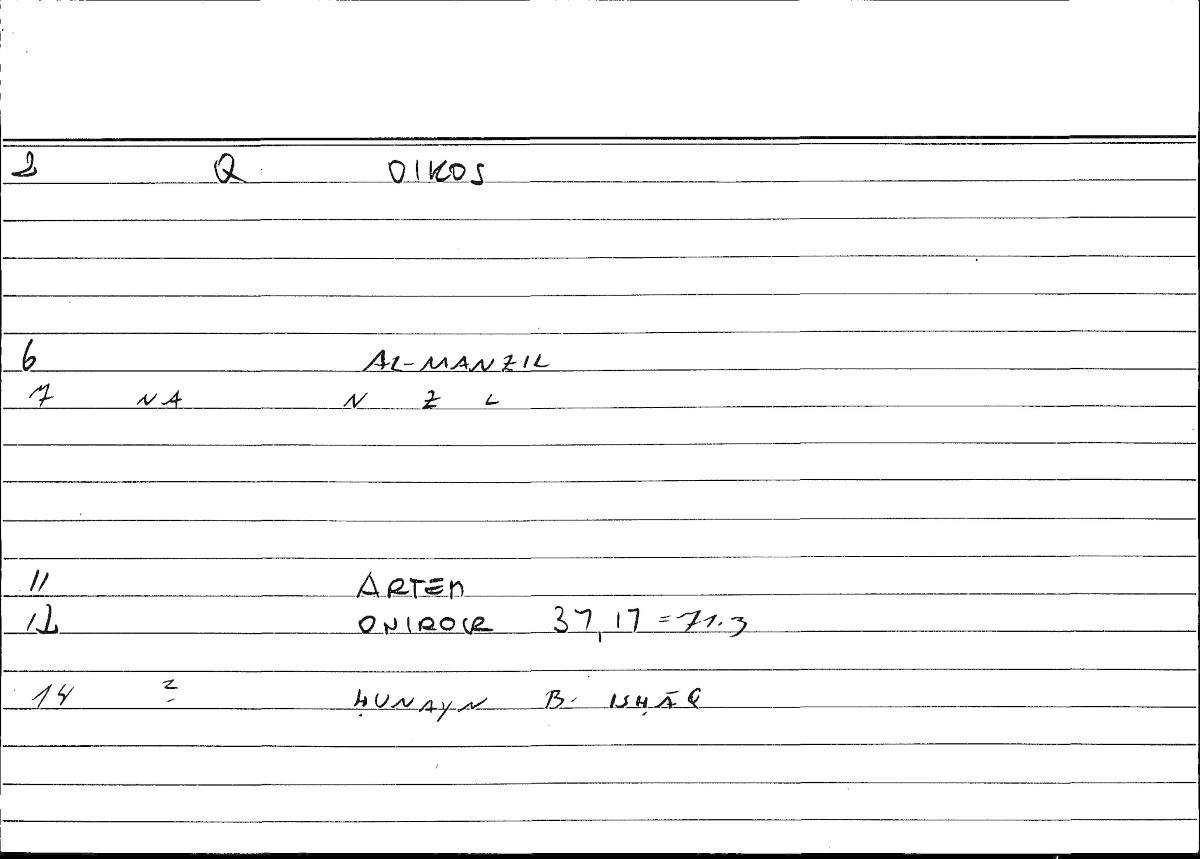 2 Q OIKOS
6 AL-MANZIL
7 NA N Z L
11 ARTEM
12 ONIROCR 37,17 = 71.3
14 2 ḤUNAYN B. ISḤĀQ